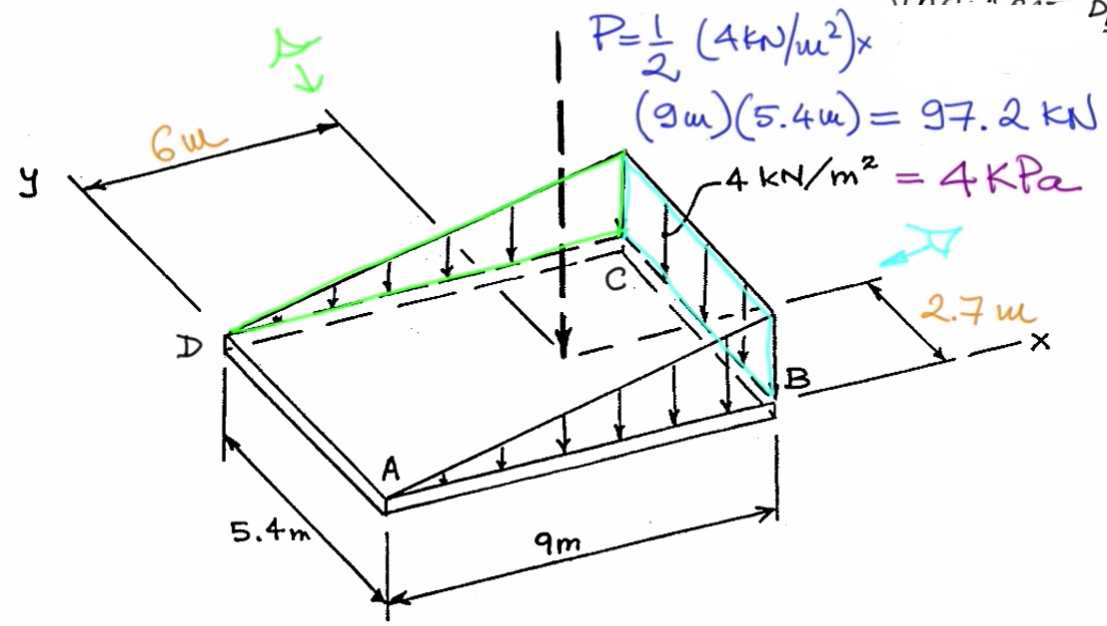 P=½ (4kN/m²)x
(9m)(5.4m) = 97.2 kN
6m
y
4 kN/m² = 4 KPa
C
2.7 m
D
x
B
A
5.4m
9m